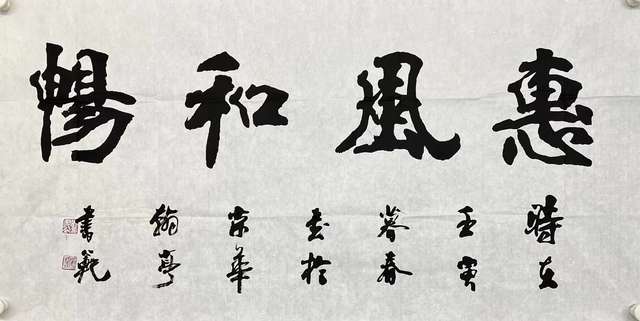 惠風和暢
時在
壬寅
暮春
書於
京華
翰亭
書範